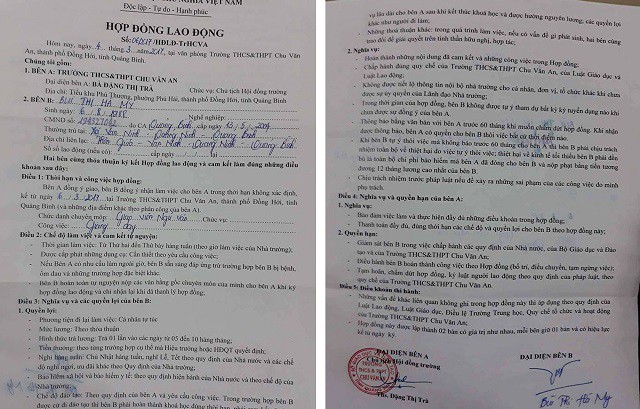 Độc lập - Tự do - Hạnh phúc
HỢP ĐỒNG LAO ĐỘNG
/HĐLĐ-TrHCVA
Hôm nay, ngày 4 tháng 3 năm, tại văn phòng Trường THCS&THPT Chu Văn
An, thành phố Đồng Hới, tỉnh Quảng Bình.
Chúng tôi gồm:
1. BÊN A: TRƯỜNG THCS&THPT CHU VĂN AN
Đại diện bên A: BÀ ĐẶNG THỊ TRÀ Chức vụ: Chủ tịch Hội đồng trường
Địa chỉ: Tiểu khu Phú Thượng, phường Phú Hải, thành phố Đồng Hới, tỉnh Quảng Bình
2. BÊN B: BÙI THỊ HÀ MY
Sinh ngày: Nghề nghiệp:
CMND số: do CA Quảng Bình cấp
Thường trú tại:
Địa chỉ liên lạc:
Số sổ tạo động (nếu có) cấp ngày
Hai bên cùng thỏa thuận ký kết Hợp đồng lao động và cam kết làm đúng những điều
khoản sau đây:
Điều 1: Thời hạn và công việc hợp đồng:
Bên A đồng ý giao, bên B đồng ý nhận làm việc cho bên A trong thời hạn không xác định,
kể từ ngày tại Trường THCS&THPT Chu Văn An, thành phố Đồng Hới, tỉnh
Quảng Bình (và những địa điểm khác theo phân công của bên A).
Chức danh chuyên môn: Giáo viên Ngữ văn Chức vụ:
Công việc: Giảng dạy
Điều 2: Chế độ làm việc và cam kết tự nguyện:
- Thời gian làm việc: Từ Thứ hai đến Thứ bảy hàng tuần (theo giờ làm việc của Nhà trường);
- Được cấp phát những dụng cụ: Cần thiết theo yêu cầu công việc;
- Nếu Bên A có nhu cầu làm ngoài giờ, bên B sẵn sàng đáp ứng trừ trường hợp bên B bị bệnh,
ốm đau và những trường hợp đặc biệt khác.
- Bên B hoàn toàn tự nguyện nộp các văn bằng gốc chuyên môn của mình cho bên A khi ký
hợp đồng lao động và chỉ nhận lại khi đã thanh lý hợp đồng.
Điều 3: Nghĩa vụ và các quyền lợi của bên B:
1. Quyền lợi:
- Phương tiện đi lại làm việc: Cá nhân tự túc
- Mức lương: Theo thỏa thuận
- Hình thức trả lương: Trả 01 lần vào các ngày từ 05 đến 10 hàng tháng;
- Tiền thưởng: theo từng trường hợp cụ thể mà Hiệu trưởng hoặc HĐQT quyết định;
- Nghỉ hàng tuần: Chủ Nhật hàng tuần, nghỉ Lễ, Tết theo quy định của Nhà nước và các chế
độ nghỉ ngơi, ưu đãi khác theo quy định của Nhà trường;
- Bảo hiểm xã hội và bảo hiểm y tế: theo quy định hiện hành của Nhà nước và theo chế độ của
Nhà trường;
- Chế độ đào tạo: Theo quy định của bên A và yêu cầu công việc. Trong trường hợp bên B
được cử đi đào tạo thì bên B phải hoàn thành khóa học đúng thời hạn
vụ lâu dài cho bên A sau khi kết thúc khoá học và được hưởng nguyên lương, các quyền lợi
khác như người đi làm;
- Những thoả thuận khác: trong quá trình làm việc, nếu có vấn đề gì phát sinh, hai bên cùng
trao đổi để giải quyết trên tinh thần hữu nghị, hợp tác;
2. Nghĩa vụ:
- Hoàn thành những nội dung đã cam kết và những công việc trong Hợp đồng;
- Chấp hành đúng quy chế của Trường THCS&THPT Chu Văn An, của Luật Giáo dục và
Luật Lao động;
- Không được tiết lộ thông tin nội bộ nhà trường cho cá nhân, đơn vị, tổ chức khác khi chưa
được sự ủy quyền của Lãnh đạo Nhà trường;
- Trong thời gian của hợp đồng, bên B không được tự ý tham dự bất kỳ kỳ tuyển dụng nào khi
chưa được sự đồng ý của bên A.
- Thông báo bằng văn bản với Bên A trước 60 tháng khi muốn chấm dứt hợp đồng. Khi nhận
được thông báo, bên A có quyền cho bên B thôi việc bất cứ thời điểm nào.
- Khi bên B tự ý thôi việc mà không báo trước 60 tháng cho bên A thì bên B phải chịu trách
nhiệm toàn bộ về thiệt hại do việc tự ý thôi việc; thiệt hại về kinh tế tối thiểu bên B phải đền
bù là toàn bộ chi phí bảo hiểm mà bên A đã đóng cho bên B và nộp phạt bằng tiền tương đương
12 tháng lương cao nhất của bên B.
- Chịu trách nhiệm trước pháp luật nếu để xảy ra những sai phạm của các công việc do mình
phụ trách.
Điều 4: Nghĩa vụ và quyền hạn của bên A:
1. Nghĩa vụ:
- Bảo đảm việc làm và thực hiện đầy đủ những điều khoản trong hợp đồng;
- Thanh toán đầy đủ, đúng thời hạn các chế độ và quyền lợi cho bên B theo hợp đồng này;
2. Quyền hạn:
- Giám sát bên B trong việc chấp hành các quy định của Nhà nước, của Bộ Giáo dục và Đào
tạo và của Trường THCS&THPT Chu Văn An;
- Điều hành bên B hoàn thành công việc theo Hợp đồng (bố trí, điều chuyển, tạm ngừng việc);
- Tạm hoãn, chấm dứt hợp đồng, kỷ luật người lao động theo quy định của pháp luật, theo
quy chế của Trường THCS&THPT Chu Văn An.
Điều 5: Điều khoản thi hành:
- Những vấn đề khác liên quan không ghi trong hợp đồng này thì áp dụng theo quy định của
Luật Lao động, Luật Giáo dục, Điều lệ Trường Trung học, Quy chế tổ chức và hoạt động
của Trường THCS&THPT Chu Văn An;
- Hợp đồng này được lập thành 02 bản có giá trị như nhau, mỗi bên giữ 01 bản và có hiệu lực
kể từ ngày ký.
ĐẠI DIỆN BÊN A ĐẠI DIỆN BÊN B
Chủ tịch Hội đồng trường
TRƯỜNG
THCS & THPT
CHU VĂN AN
Ths. Đặng Thị Trà
Bùi Thị Hà My